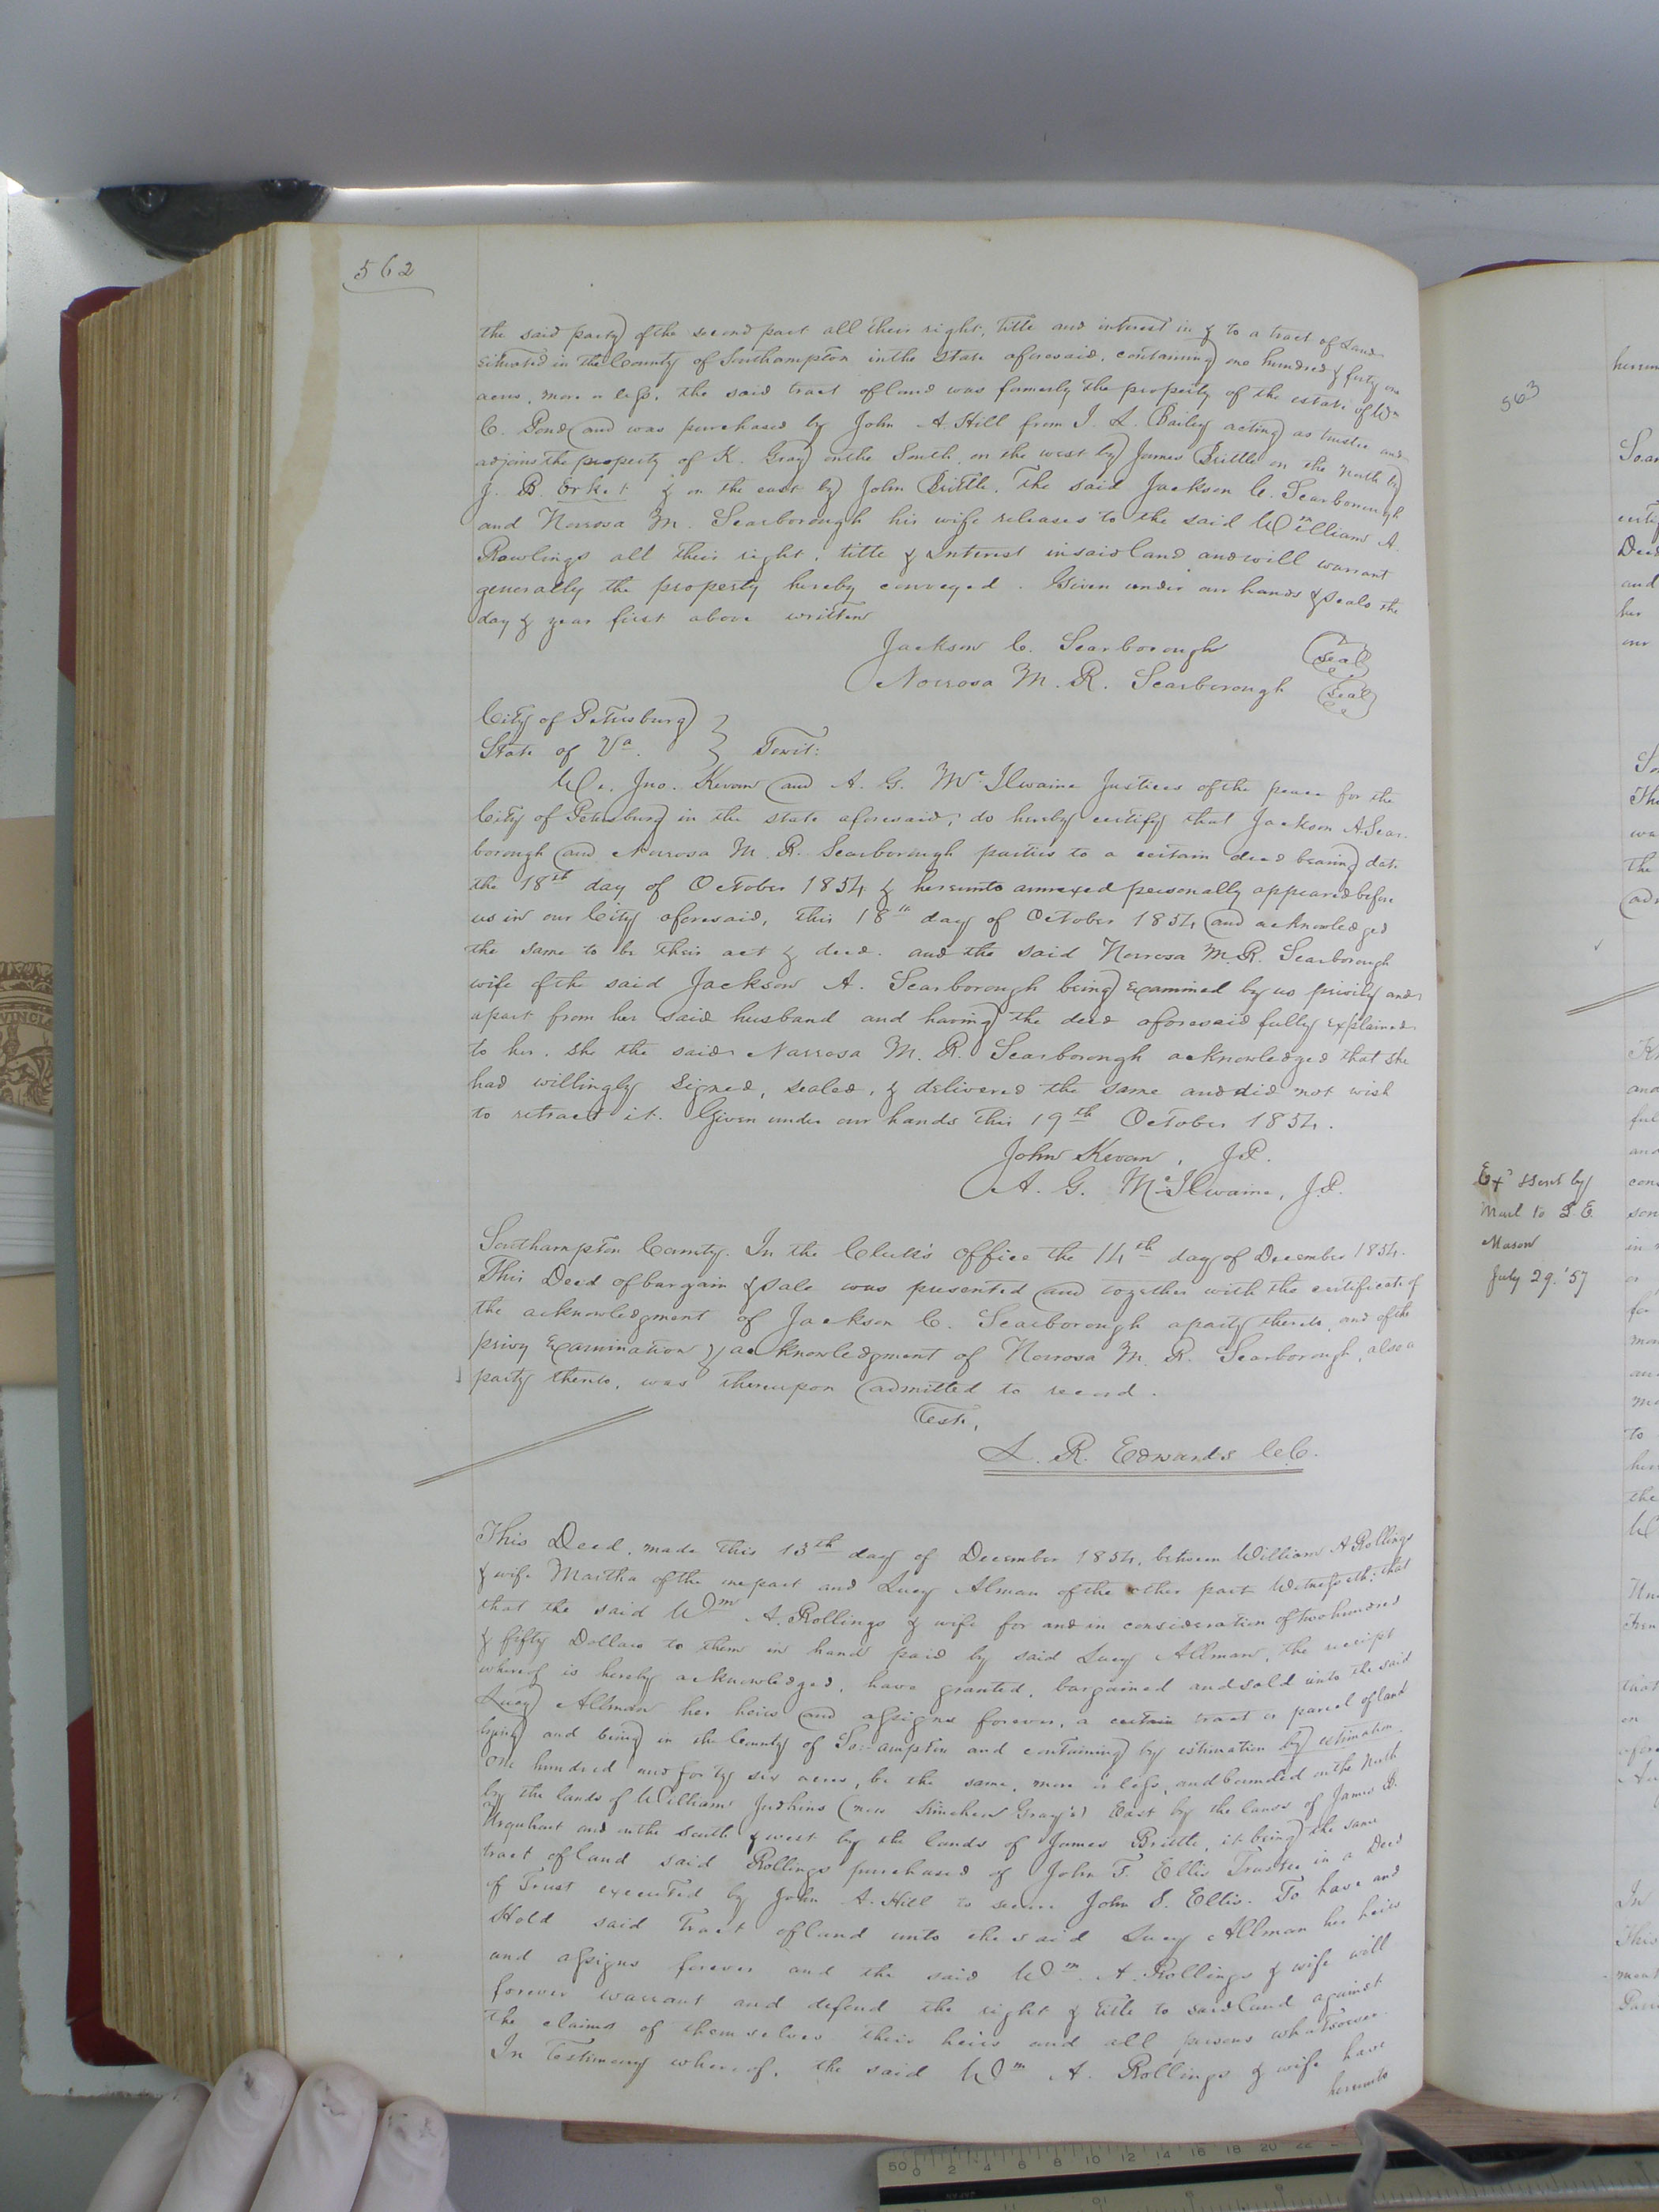 562
the said party of the second part all their right, title and interest in & to a tract of Land
situated in the County of Southampton in the State aforesaid, containing one hundred & forty one
acres, more or less. the said tract of land was formerly the property of the estate of Wm
C. Pond and was purchased by John A. Hill from J. L. Bailey acting as trustee and
adjoins the property of K. Gray on the South, on the west by James Brittle on the North by
J. B. & on the east by John Brittle. The said Jackson C. Scarborough
and Norrosa M. Scarborough his wife releases to the said William A.
Rawlings all their right, title & Interest in said land and will warrant
generally the property hereby conveyed. Given under our hands & seals the
day & year first above written
Jackson C. Scarborough (seal)
Norrosa M. R. Scarborough (seal)
City of Petersburg }
State of Va. } Towit:
We, Jno. Kevan and A. G. McIlwaine Justices of the peace for the
City of Petersburg in the state aforesaid, do hereby certify that Jackson A. Scar-
borough and Norrosa M. R. Scarborough parties to a certain deed bearing date
the 18th day of October 1854 & hereunto annexed personally appeared before
us in our City aforesaid, this 18th day of October 1854 and acknowledged
the same to be their act & deed. and the said Norrosa M. R. Scarborough
wife of the said Jackson A. Scarborough being examined by us privily and
apart from her said husband and having the deed aforesaid fully explained
to her. she the said Narrosa M. R. Scarborough acknowledged that she
had willingly signed, sealed, & delivered the same and did not wish
to retract it. Given under our hands this 19th October 1854.
John Kevan, J.P.
A. G. McIlwaine, J.P.
Southampton County. In the Clerk's office the 14th day of December 1854.
This Deed of bargain & sale was presented and together with the certificate of
the acknowledgment of Jackson C. Scarborough a party thereto, and of the
privy Examination & acknowledgment of Norrosa M. R. Scarborough, also a
party thereto, was thereupon admitted to record.
Test,
L. R. Edwards C.C.
This Deed, made this 13th day of December 1854, between William A Rollings
& wife Martha of the one part and Lucy Alman of the other part Witnesseth: that
that the said Wm A. Rollings & wife for and in consideration of two hundred
& fifty Dollars to them in hand paid by said Lucy Allman, the receipt
whereof is hereby acknowledged, have granted, bargained and sold unto the said
Lucy Allman her heirs and assigns forever, a certain tract or parcel of land
lying and being in the County of Southampton and containing by estimation by estimation
one hundred and forty six acres, be the same, more or less, and bounded on the North
by the lands of William Judkins (now Gray's) East by the lands of James B.
Urquhart and on the South & west by the lands of James Brittle, it being the same
tract of land said Rollings purchased of John F. Ellis Trustee in a Deed
of Trust executed by John A. Hill to secure John S. Ellis. To have and
Hold said Tract of land unto the said Lucy Allman her heirs
and assigns forever and the said Wm. A. Rollings & wife will
forever warrant and defend the right & title to said land against
the claims of themselves their heirs and all persons whatsoever.
In Testimony whereof, the said Wm A. Rollings & wife have
hereunto
563
Exd & sent by
Mail to L. E.
Mason
July 29. '57
50 0 2 4 6 8 10 12 14 16 18 20 22